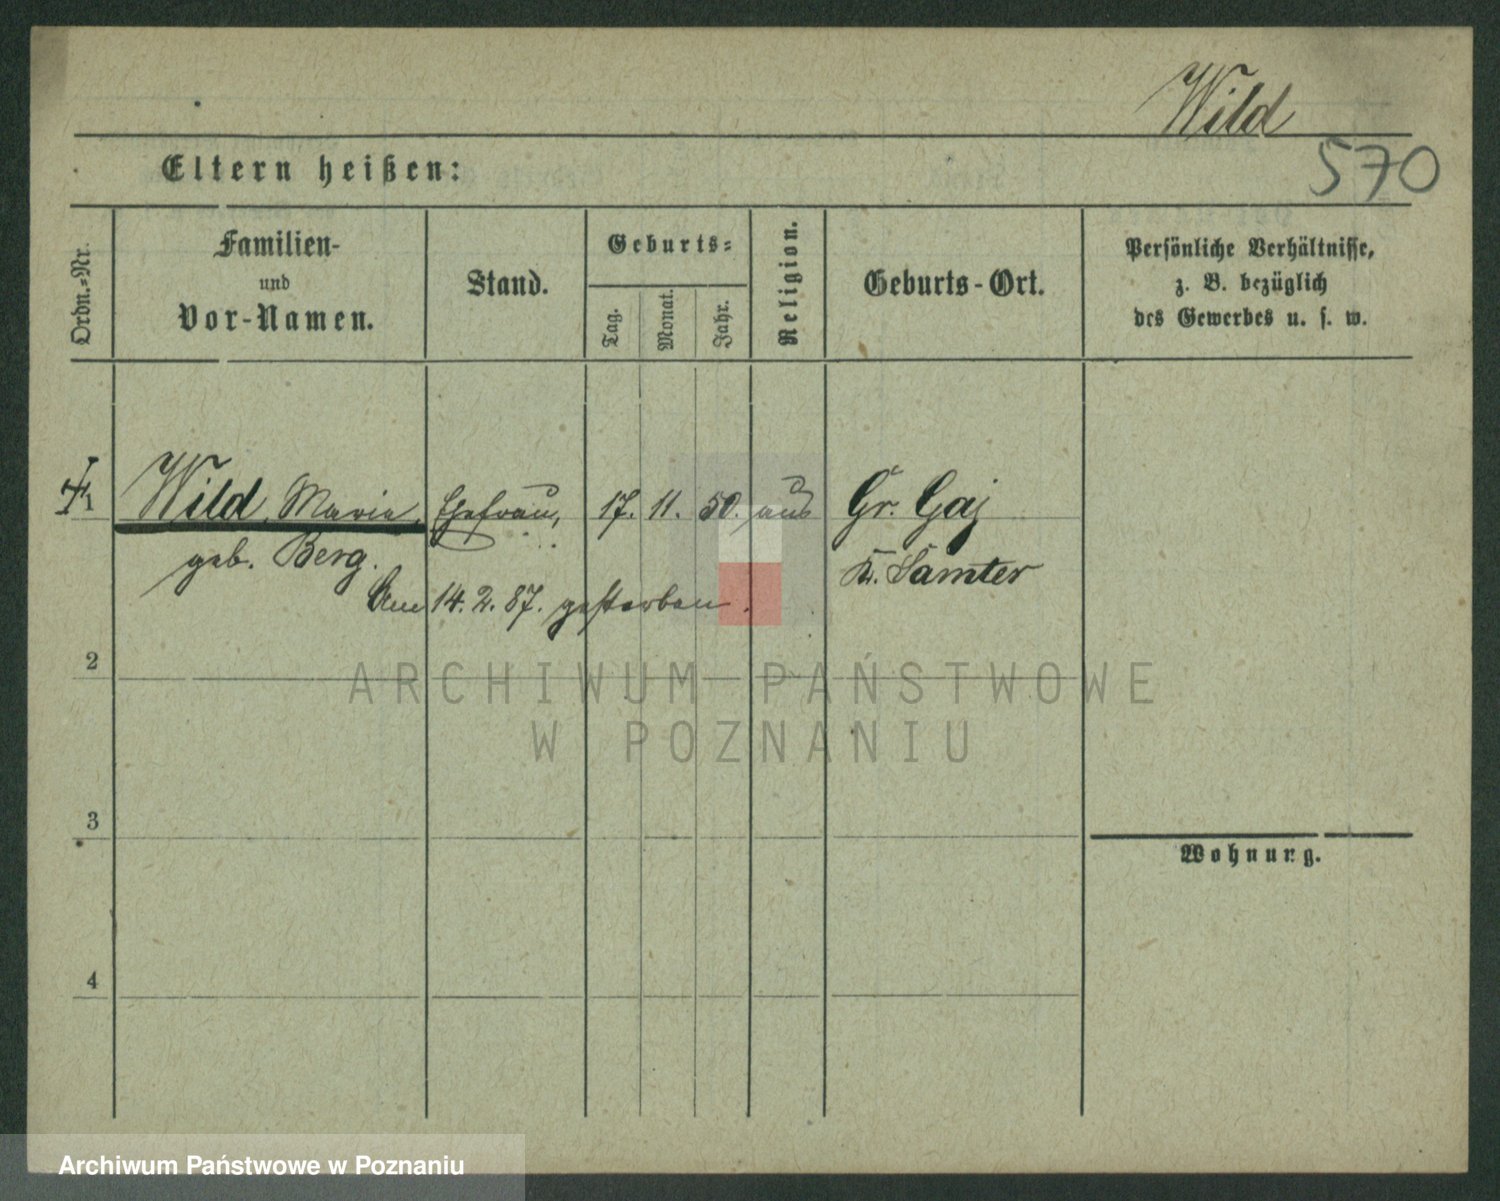 Wild
570
Eltern heißen:
Ordn.-Nr.
Familien-
und
Vor-Namen.
Stand.
Geburts-
Tag.
Monat.
Jahr.
Religion.
Geburts-Ort.
Persönliche Verhältnisse,
z. B. bezüglich
des Gewerbes u. s. w.
1 Wild, Marie, Ehefrau, 17. 11. 50. aus Gr. Gaj
geb. Berg. Kr. Samter
Am 14. 2. 87. gestorben.
2
ARCHIWUM PAŃSTWOWE
W POZNANIU
3
Wohnung.
4
Archiwum Państwowe w Poznaniu